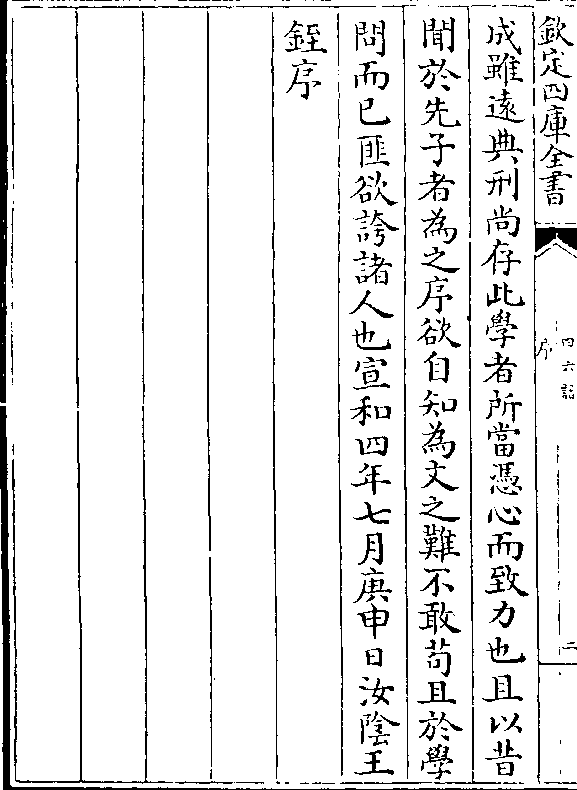 欽定四庫全書
四六話
序
二
成雖遠典刑尚存此學者所當憑心而致力也且以昔
聞於先子者為之序欲自知為文之難不敢茍且於學
問而已匪欲誇諸人也宣和四年七月庚申日汝陰王
銍序